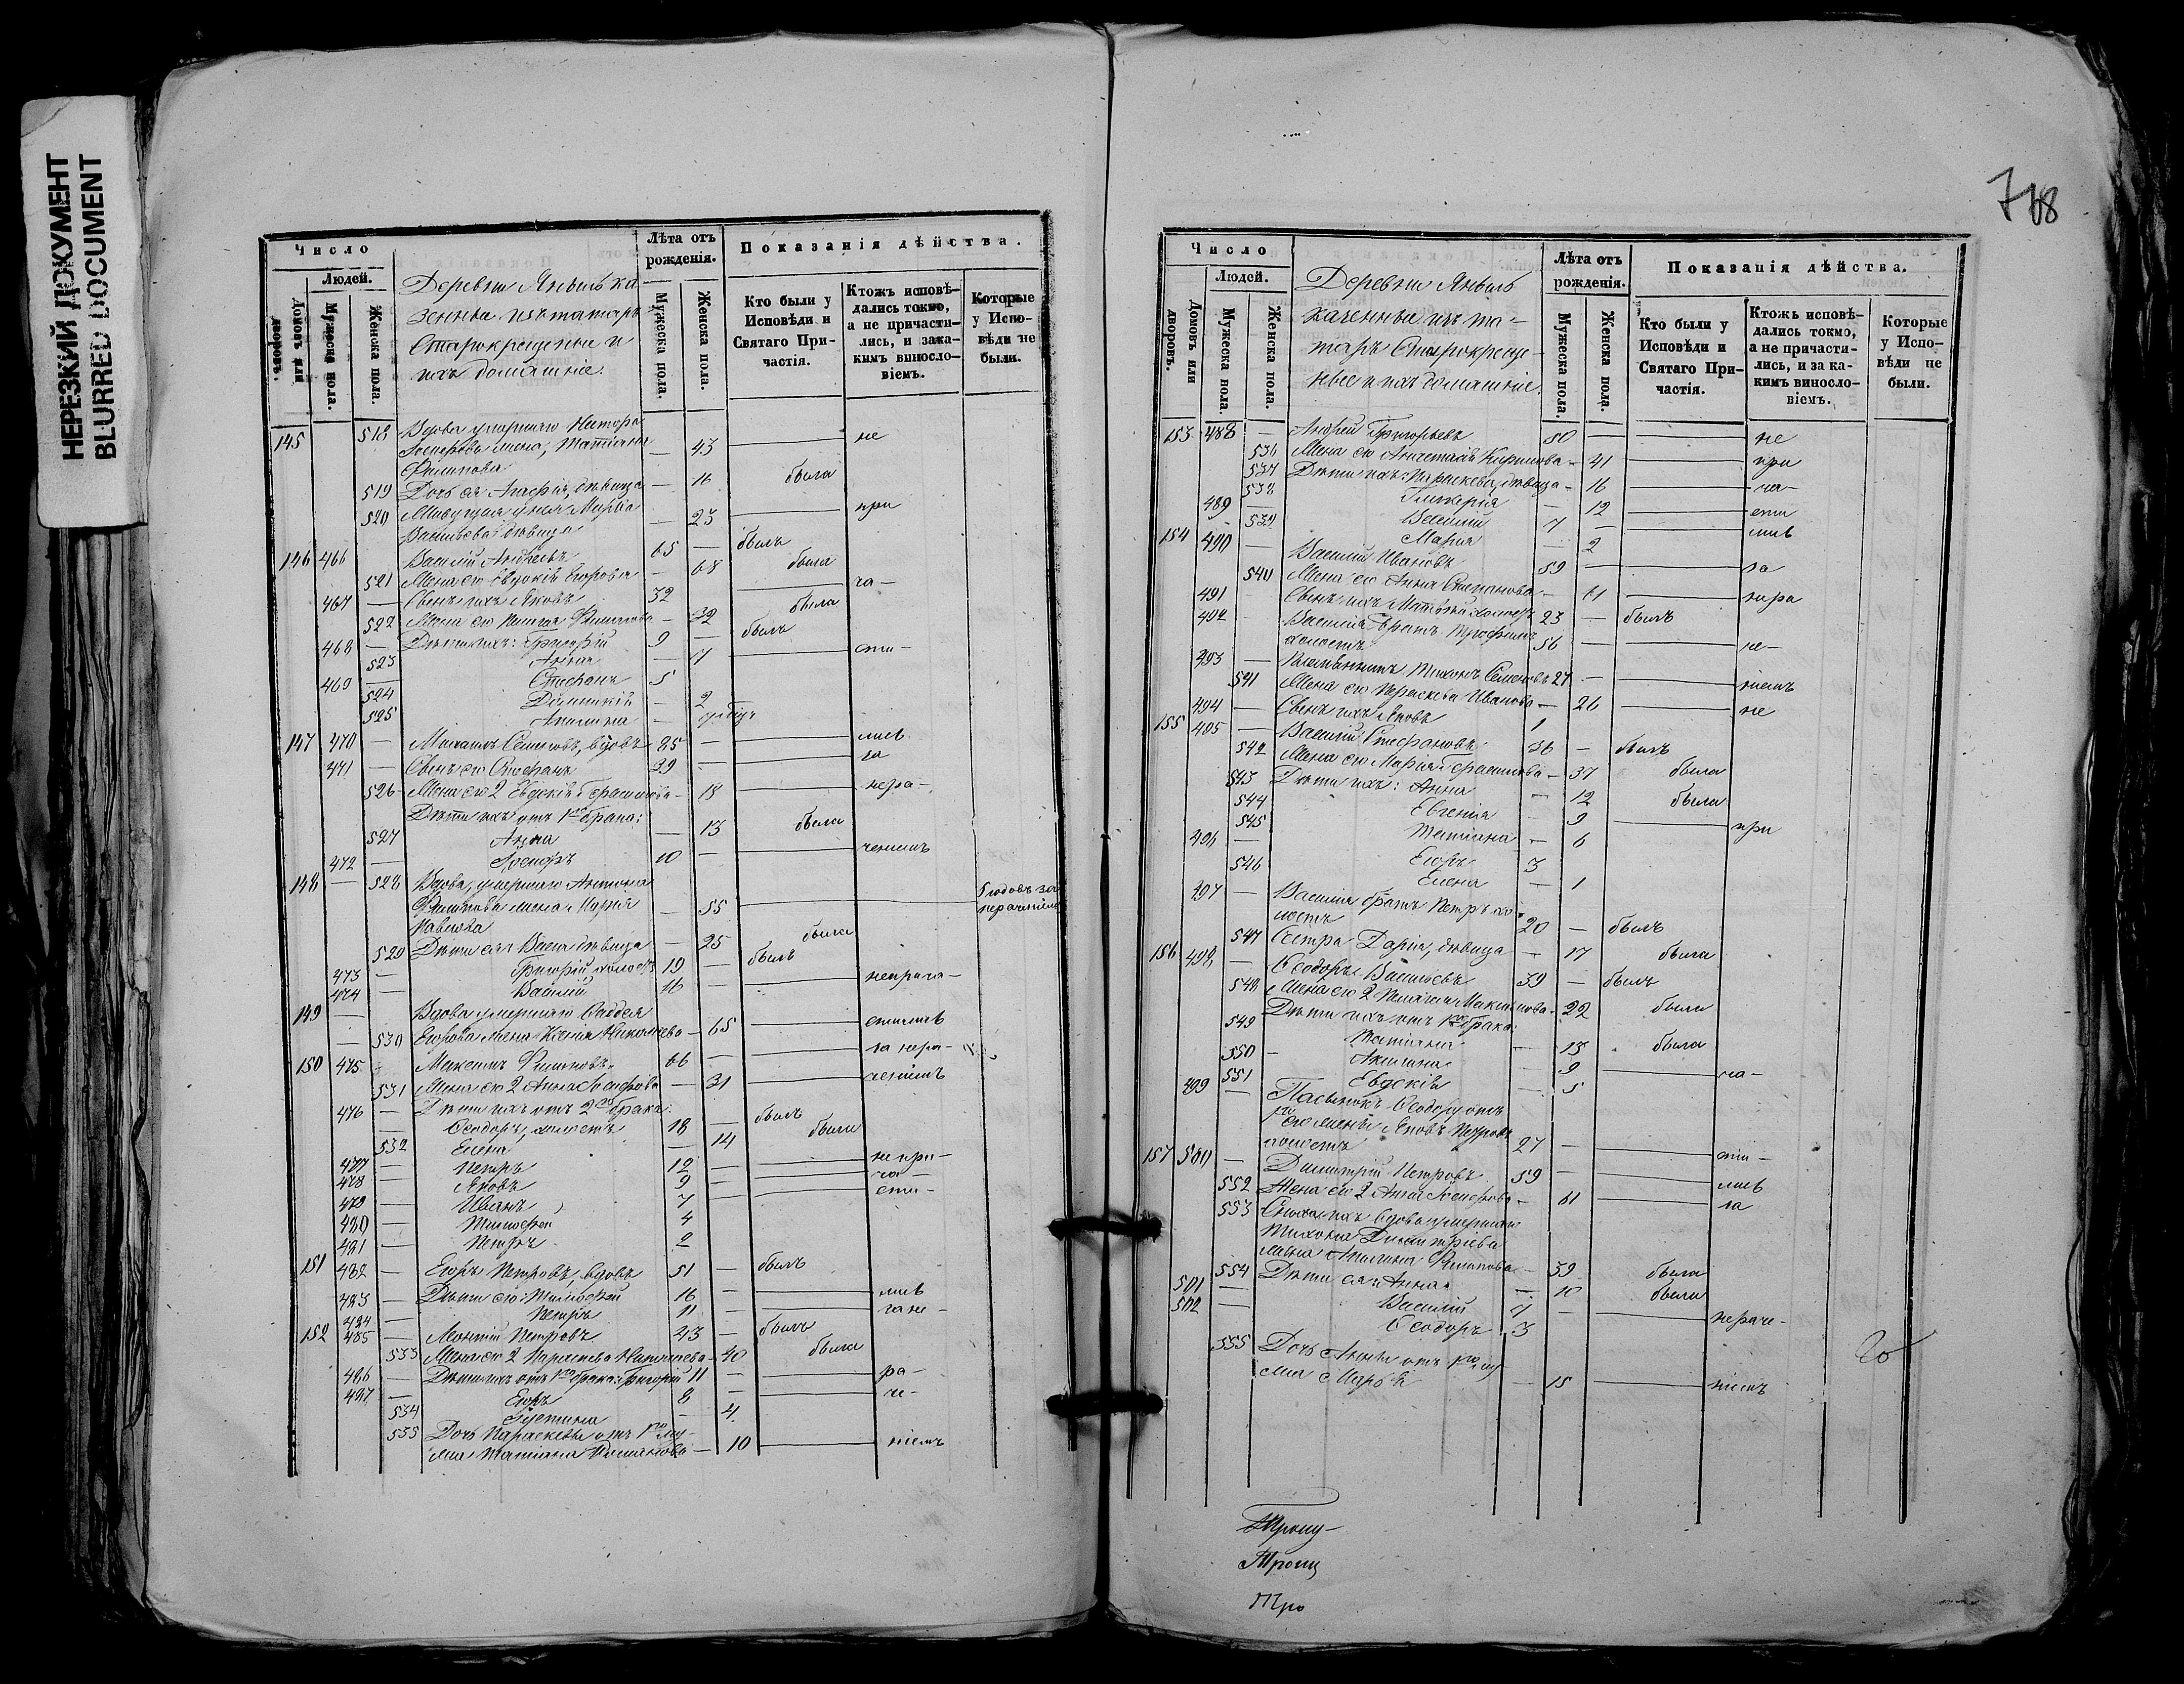 НЕРЕЗКИЙ ДОКУМЕНТ
BLURRED DOCUMENT
Число
Людей.
Домовъ или дворовъ.
Мужеска пола.
Женска пола.
Деревни Янылъ ка
зенные изъ татаръ
Старокрещеные и
ихъ домашніе.
Лѣта отъ рожденія.
Мужеска пола.
Женска пола.
Показанія дѣйства.
Кто были у Исповѣди и Святаго Причастія.
Ктожъ исповѣдались токмо, а не причастились, и за какимъ винословіемъ.
Которые у Исповѣди не были.
145 518 Вдова умершаго
жена, Татіана — 43 — не
Филипова
519 Дочь ея Агафія, дѣвица — 16 была
520 Живущая у нея Марѳа — 23 — при
Васильева дѣвица
146 466 Василій Андреевъ 65 — былъ
521 Жена его Евдокія Егорова — 68 была
467 — Сынъ ихъ Яковъ 32 — ча-
522 Жена его Филипова — 32 была
468 — Дѣти ихъ: Григорій 9 — былъ
523 Анна — 11 — сти-
469 — Стефанъ 5
524 — 2
525 Акилина —
147 470 — Семеновъ, вдовъ 85 — лись
471 — Сынъ его Стефанъ 39 — за
526 Жена его 2 Евдокія Герасимова — 18 — нера-
Дѣти ихъ отъ 1го брака:
527 Анна — 13 была
472 — 10 — ченіемъ
148 — 528 Вдова, умершаго Антона 5 годовъ за
Филипова жена Марія — 55 — нераченіемъ
Павлова
529 Дѣти ея: дѣвица — 25 была
473 — Григорій холостъ 19 — былъ
474 — Василій 16 — неприча-
149 — Вдова умершаго Фаддея
530 Егорова жена Ксенія Николаева — 65 — стились
150 475 Максимъ Филиповъ 66 — за нера-
531 Жена его 2 Анна — 31 — ченіемъ
476 — Дѣти ихъ отъ 2го брака:
Ѳеодоръ, холостъ 18 — былъ
532 Елена — 14 была
477 — Петръ 12 — непри-
478 — Яковъ 9 — ча-
479 — Иванъ 7 — сти-
480 — Тимофей 4
481 — Петръ 2
151 482 — Егоръ Петровъ, вдовъ 51 — былъ
483 — Дѣти его: Тимофей 16 — лись
484 — Петръ 11 — за не-
152 485 — Петровъ 43 — былъ
533 Жена его 2 Параскева — 40 была
486 — Дѣти ихъ отъ 1го брака: Григорій 11 — ра-
487 — Егоръ 8 — че-
534 Устина — 4
535 Дочь Параскевы отъ 1го му-
жа Татіана — 10 — ніемъ
768
Число
Людей.
Домовъ или дворовъ.
Мужеска пола.
Женска пола.
Деревни Янылъ
казенные изъ та-
таръ Старокреще-
ные и ихъ домашніе.
Лѣта отъ рожденія.
Мужеска пола.
Женска пола.
Показанія дѣйства.
Кто были у Исповѣди и Святаго Причастія.
Ктожъ исповѣдались токмо, а не причастились, и за какимъ винословіемъ.
Которые у Исповѣди не были.
153 488 — Андрей Григорьевъ 50 — не
536 Жена его Анастасія Кирилова — 41 — при
537 Дѣти ихъ: Параскева, дѣвица — 16 — ча-
538 Гликерія — 12 — сти
489 — Василій 7 — лись
539 Марія — 2
154 490 — Василій Ивановъ 59 — за
540 Жена его Анна Степанова — 61 — нера
491 Сынъ ихъ Матѳей холостъ 23 — былъ
492 — Василія братъ Трофимъ
холостъ 56 — че-
493 — Племянникъ Тихонъ Семеновъ 27 — ніемъ
541 Жена его Параскева Иванова — 26 — не
494 — Сынъ ихъ Яковъ 1
155 495 — Василій Стефановъ 36 — былъ
542 Жена его Марія Герасимова — 37 была
543 Дѣти ихъ: Анна — 12 была
544 Евгенія — 9 — при
545 Татіана — 6
496 — Егоръ 3
546 Елена — 1
497 — Василія братъ Петръ хо-
лостъ 20 — былъ
547 Сестра Дарія, дѣвица — 17 была
156 498 — Ѳеодоръ Васильевъ 39 — былъ
548 Жена его 2 Пелагея Максимова — 22 была
Дѣти ихъ отъ 1го брака:
549 Татіана — 13 была
550 — Акилина — 9 — ча-
551 Евдокія — 5
499 — Пасынокъ Ѳеодору отъ
1го его жены Яковъ Петровъ
холостъ 27 — сти-
157 500 — Димитрій Петровъ 59 — лись
552 Жена его 2 Анна — 61 — за
553 Сноха ихъ вдова умершаго
Тихона Димитріева
жена Акилина Филипова — 39 была
554 Дѣти ея: Анна — 10 была
501 — Василій 7 — нераче-
502 — Ѳеодоръ 3
555 Дочь Анны отъ 1го му
жа Марѳа — 15 — ніемъ
Троиц-
Троиц
Тро